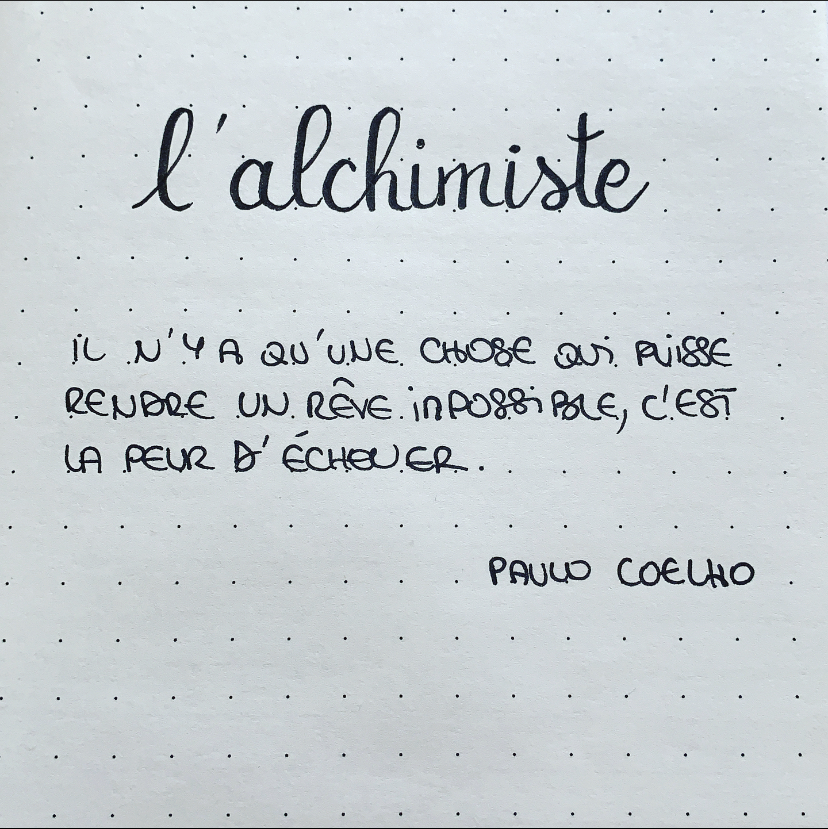 l'alchimiste
IL N'Y A QU'UNE CHOSE QUI PUISSE
RENDRE UN RÊVE IMPOSSIBLE, C'EST
LA PEUR D'ÉCHOUER.
PAULO COELHO